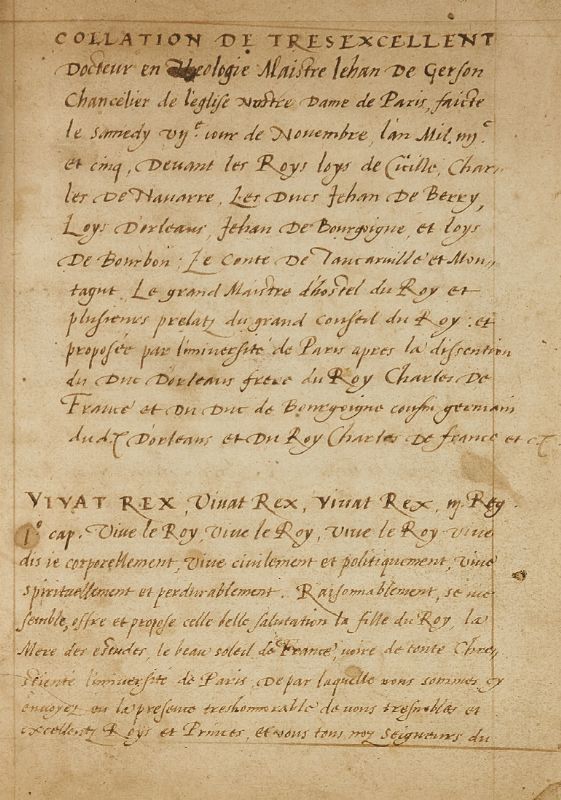 COLLATION DE TRESEXCELLENT
Docteur en Theologie Maistre Iehan De Gerson
Chancelier de l'eglise Nostre Dame de Paris, faicte
le samedy vije iour de Novembre, l'an Mil. iiijc
et cinq, Devant les Roys loys de Cicille, Char
les De Navarre, Les Ducs Jehan De Berry,
Loys D'orleans, Jehan De Bourgoigne, et loys
De Bourbon; Le Conte De Tancarville et Mon,,
tagut Le grand Maistre d'hostel du Roy et
plusieurs prelatz du grand Conseil du Roy: et
proposée par l'université de Paris apres la dissention
du Duc D'orleans frere du Roy Charles De
France et Du Duc de Bourgoigne cousin germain
dud. D'orleans et Du Roy Charles De france et
VIVAT REX, Vivat Rex, Vivat Rex, iij Reg
Io cap. Vive le Roy, Vive le Roy, Vive le Roy Vive
dis ie corporellement, Vive civilement et politiquement, Vive
spirituellement et perdurablement. Raisonnablement, se me
semble, offre et propose celle belle salutation la fille du Roy, la
Mere des estudes, le beau soleil de France, voire de toute Chre,
stienté l'université de Paris, De par laquelle nous sommes cy
envoyez en la presence treshonnorable de vous tresnobles et
excellentz Roys et Princes, et vous tous noz Seigneurs du